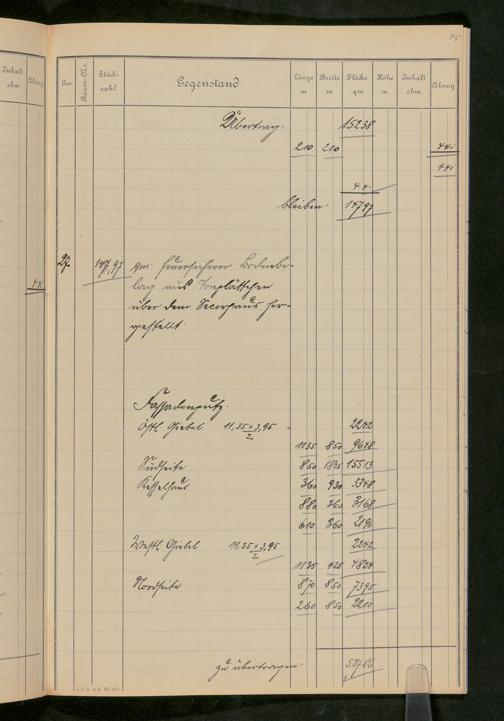 75
Inhalt
cbm
Abzug
Pos.
Raum-Nr.
Stück-
zahl
Gegenstand
Länge
m
Breite
m
Fläche
qm
Höhe
m
Inhalt
cbm
Abzug
Übertrag: 15238
210 210 441
441
4 41
bleiben. 14797
27 147,97 qm. feuersicherer Bodenbe-
lag aus Tonplättchen
über dem her-
gestellt.
Fassadenputz.
Östl Giebel 11,35 × 3,95 2242
2
1135 850 9648
Südseite 850 1825 15513
Kesselhaus 360 930 3348
880 360 3168
610 360 2196
Westl Giebel 11,35 × 3,95 2242
2
1135 425 4824
Nordseite 870 850 7395
260 850 2210
zu übertragen.